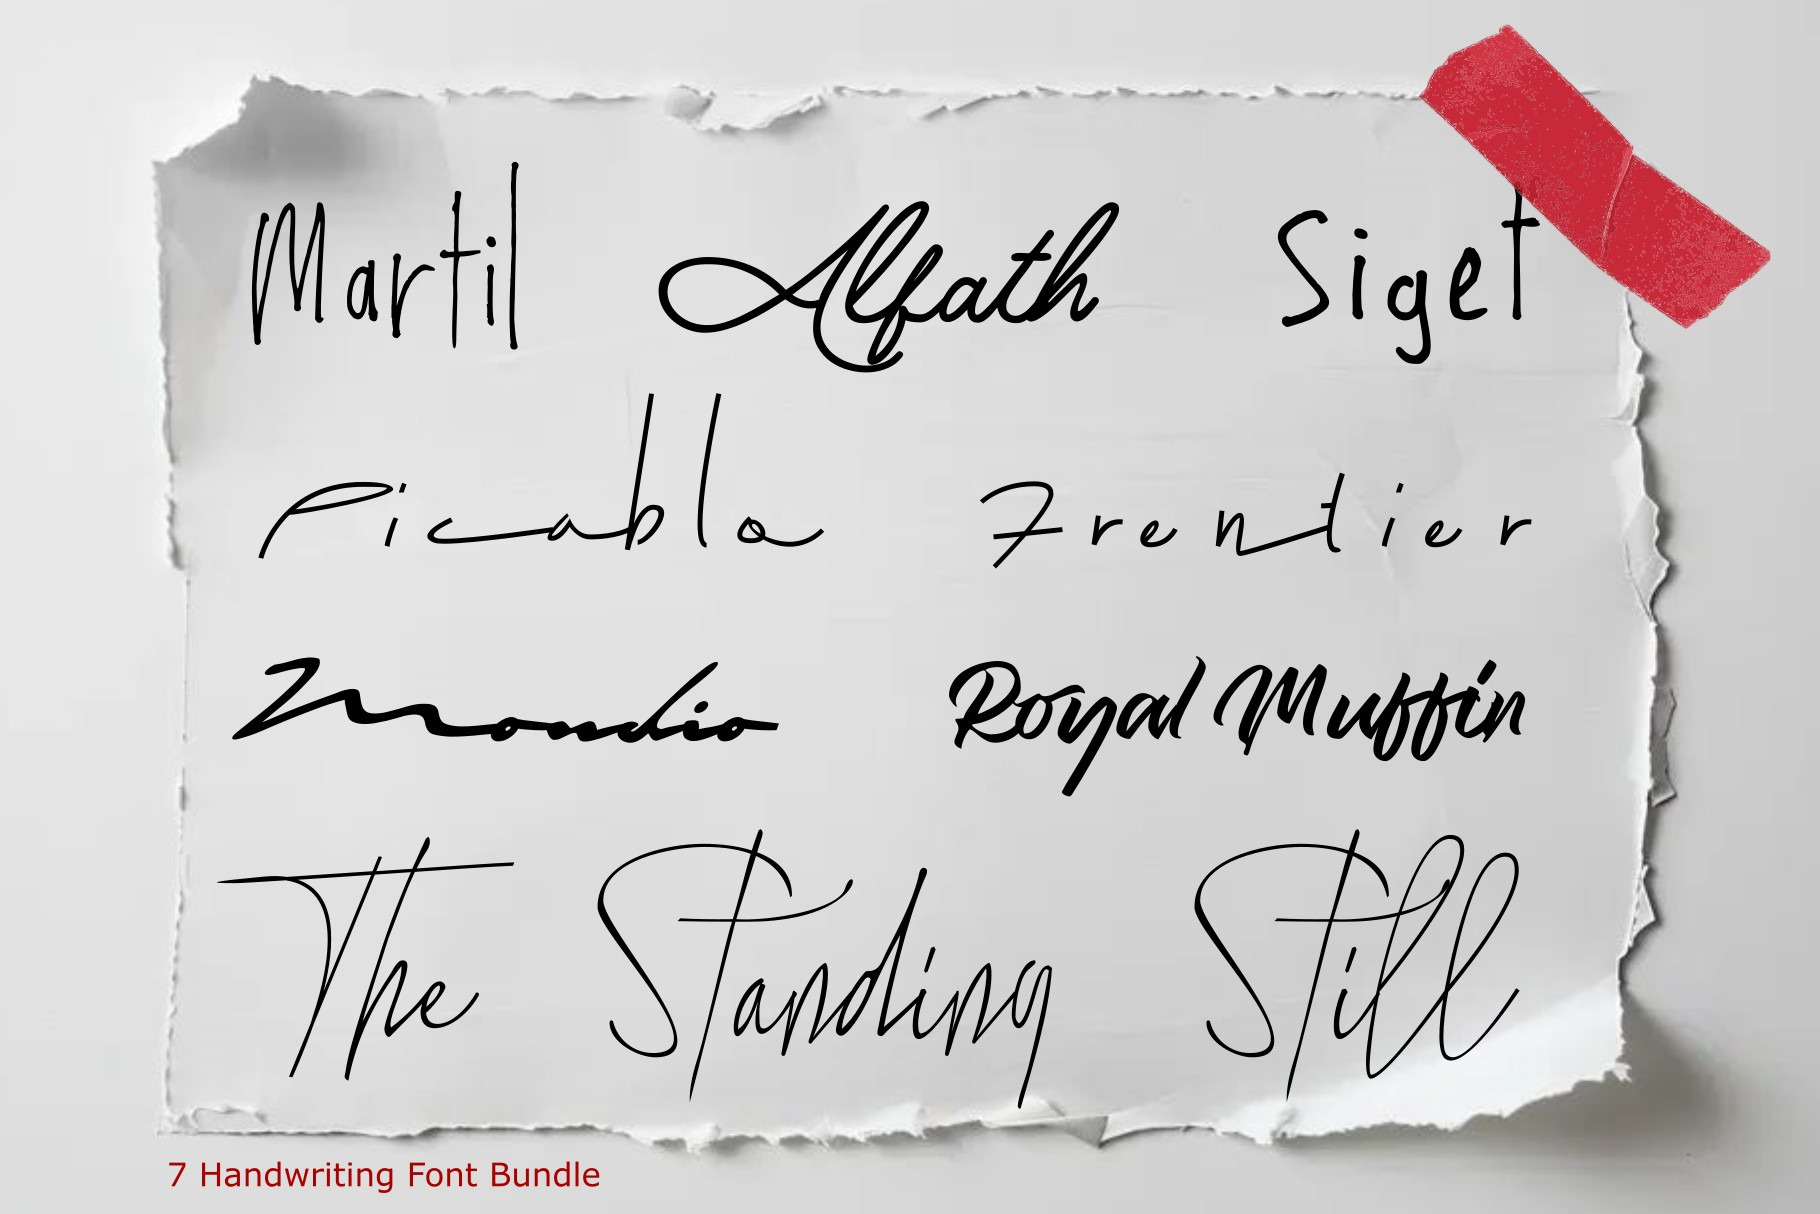 Martil Alfath Siget
Picablo Frentier
Mondio Royal Muffin
The Standing Still
7 Handwriting Font Bundle